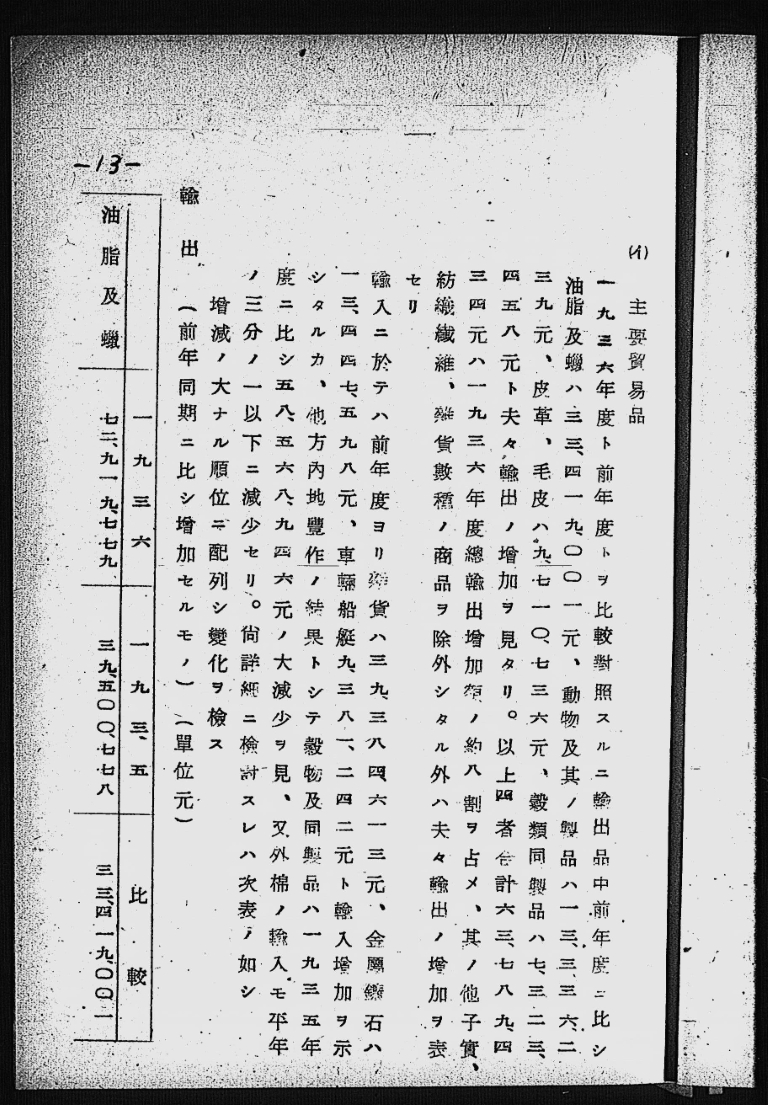 (イ)　主要貿易品
一九三六年度ト前年度トヲ比較對照スルニ輸出品中前年度ニ比シ
油脂及蠟ハ三三、四一九、〇〇一元、動物及其ノ製品ハ一三、三三六、二
三九元、皮革、毛皮ハ九、七一〇、七三六元、穀類同製品ハ七、三二三、
四五八元ト夫々輸出ノ增加ヲ見タリ。以上四者合計六三、七八九、四
三四元ハ一九三六年度總輸出增加額ノ約八割ヲ占メ、其ノ他子實、
紡織纖維、雜貨數種ノ商品ヲ除外シタル外ハ夫々輸出ノ增加ヲ表
セリ
輸入ニ於テハ前年度ヨリ雜貨ハ三九、三八四、六一三元、金屬鑛石ハ
一三、四四七、五九八元、車輛船艇九、三八一、二四二元ト輸入增加ヲ示
シタルカ、他方內地豐作ノ結果トシテ穀物及同製品ハ一九三五年
度ニ比シ五八、五六八、九四六元ノ大減少ヲ見、又外棉ノ輸入モ平年
ノ三分ノ一以下ニ減少セリ。尙詳細ニ檢討スレハ次表ノ如シ
增減ノ大ナル順位ニ配列シ變化ヲ檢ス
輸出　(前年同期ニ比シ增加セルモノ)(單位元)
一九三六　一九三、五　比較
油脂及蠟　七二、九一九、七七九　三九、五〇〇、七七八　三三、四一九、〇〇一
-13-